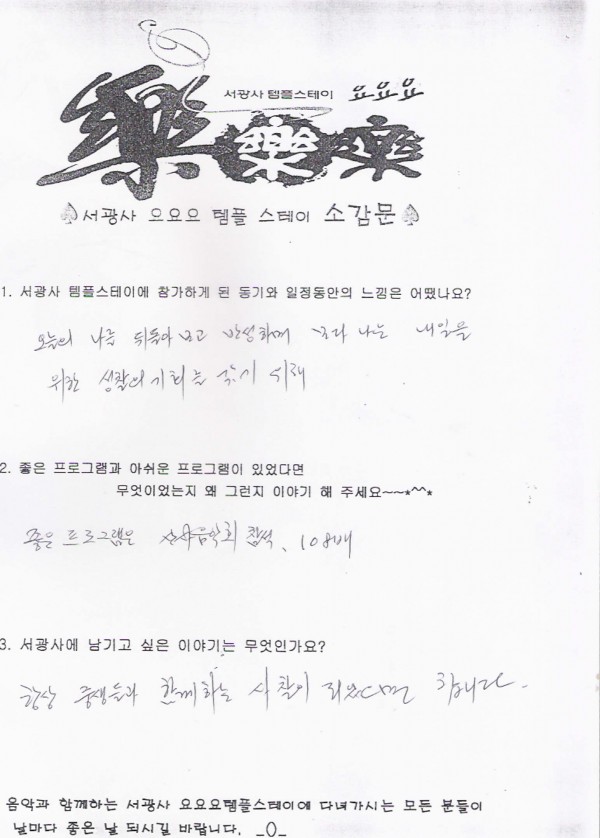 樂 서광사 템플스테이 요요요
樂 樂
서광사 으요으 템플 스테이 소감문
1. 서광사 템플스테이에 참가하게 된 동기와 일정동안의 느낌은 어땠나요?
오늘의 나를 뒤돌아 보고 반성하며 보다 나은 내일을
위한 성찰의 기회를 갖기 위해
2. 좋은 프로그램과 아쉬운 프로그램이 있었다면
무엇이었는지 왜 그런지 이야기 해 주세요~~*^^*
좋은 프로그램은 산사음악회 참석, 108배
3. 서광사에 남기고 싶은 이야기는 무엇인가요?
항상 중생들과 함께하는 사찰이 되었으면 합니다.
음악과 함께하는 서광사 요요요템플스테이에 다녀가시는 모든 분들이
날마다 좋은 날 되시길 바랍니다. _()_